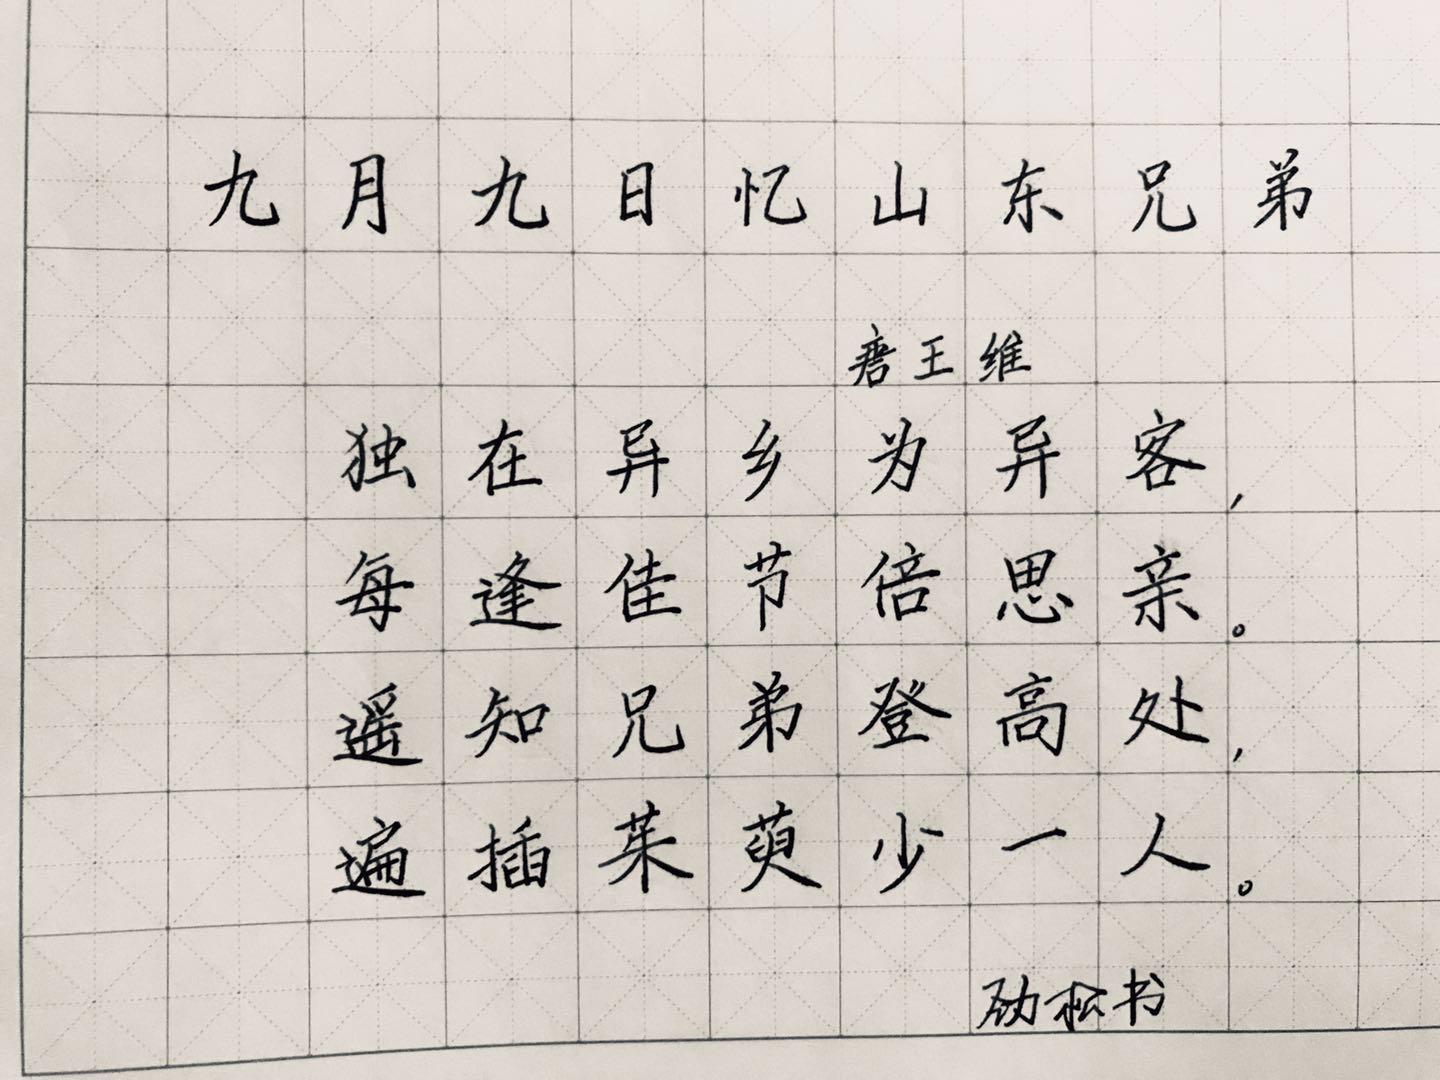 九月九日忆山东兄弟
唐王维
独在异乡为异客，
每逢佳节倍思亲。
遥知兄弟登高处，
遍插茱萸少一人。
劲松书